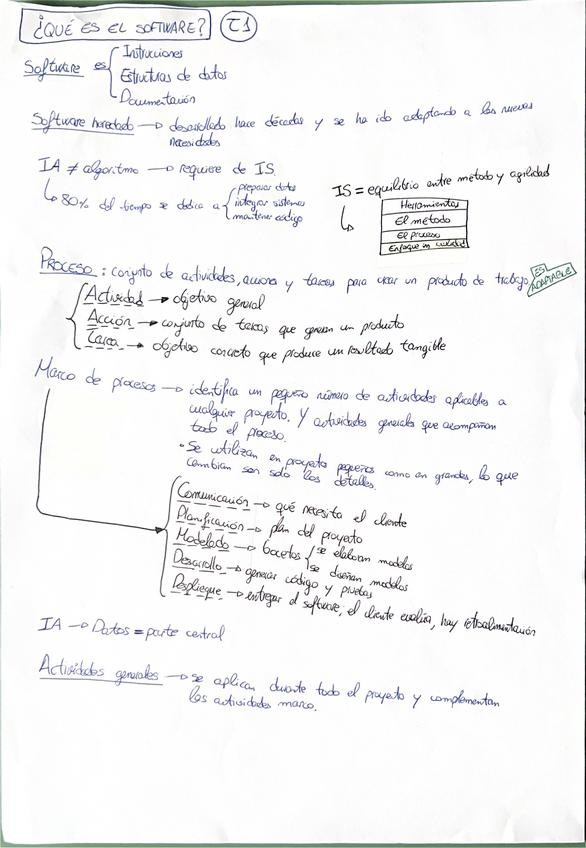 ¿QUÉ ES EL SOFTWARE? T1
Software es
Instrucciones
Estructuras de datos
Documentación
Software heredado → desarrollado hace décadas y se ha ido adaptando a las nuevas
necesidades
IA ≠ algoritmo → requiere de IS.
↳ 80% del tiempo se dedica a
preparar datos
integrar sistemas
mantener código
IS = equilibrio entre método y agilidad
Herramientas
El método
El proceso
Enfoque en calidad
PROCESO: conjunto de actividades, acciona y tareas para crear un producto de trabajo
ES ADAPTABLE
Actividad → objetivo general
Acción → conjunto de tareas que generan un producto
Tarea → objetivo concreto que produce un resultado tangible
Marco de procesos → identifica un pequeño número de actividades aplicables a
cualquier proyecto. Y actividades generales que acompañan
todo el proceso.
• Se utilizan en proyecto pequeños como en grandes, lo que
cambian son solo los detalles.
Comunicación → qué necesita el cliente
Planificación → plan del proyecto
Modelado → bocetos
se elaboran modelos
se diseñan modelos
Desarrollo → generar código y pruebas
Despliegue → entregar el software, el cliente evalúa, hay retroalimentación
IA → Datos = parte central
Actividades generales → se aplican durante todo el proyecto y complementan
las actividades marco.